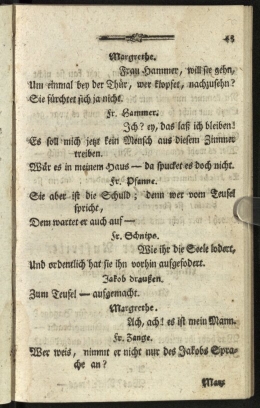 45
Margrethe.
Frau Hammer, will sie gehn,
Um einmal bey der Thür, wer klopfet, nachzusehn?
Sie fürchtet sich ja nicht.
Fr. Hammer.
Ich? ey, das laß ich bleiben!
Es soll mich jetzt kein Mensch aus diesem Zimmer
treiben.
Wär es in meinem Haus — da spucket es doch nicht.
Fr. Pfanne.
Sie aber ist die Schuld; denn wer vom Teufel
spricht,
Dem wartet er auch auf —
Fr. Schnips.
Wie ihr die Seele lodert,
Und ordentlich hat sie ihn vorhin aufgefodert.
Jakob draußen.
Zum Teufel — aufgemacht.
Margrethe.
Ach, ach! es ist mein Mann.
Fr. Zange.
Wer weis, nimmt er nicht nur des Jakobs Spra-
che an?
Mar-